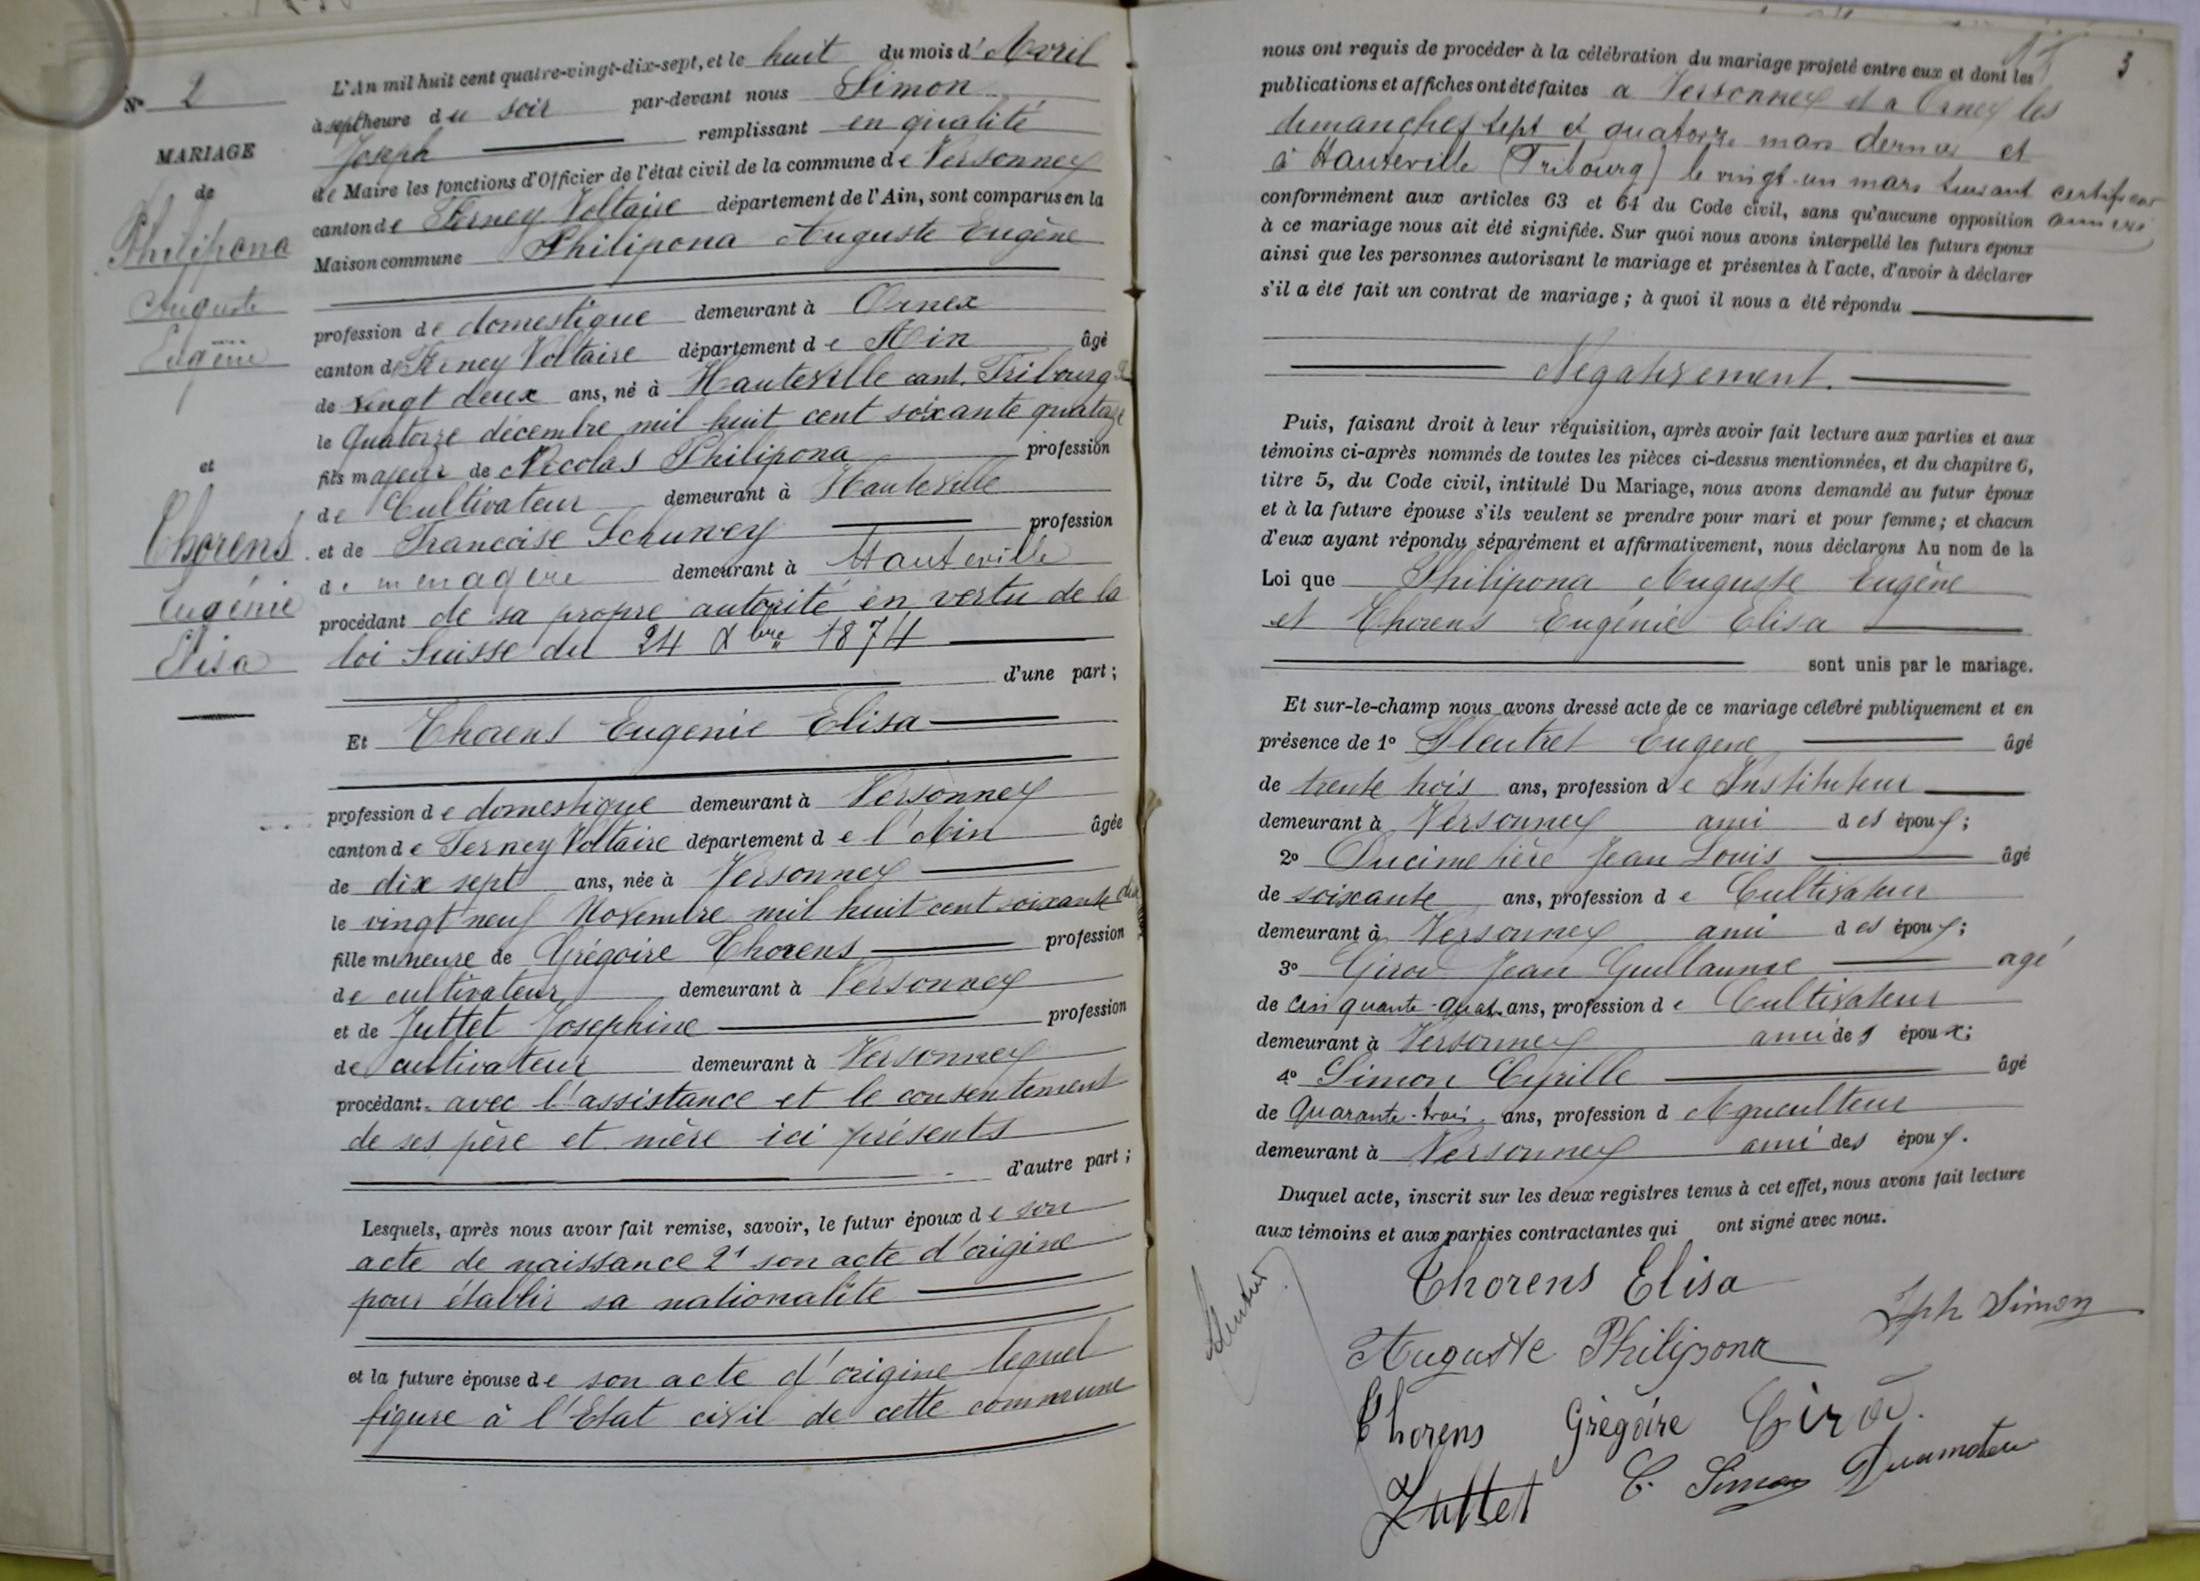 N° 2
MARIAGE
de
Philipona
Auguste
Eugène
et
Thorens
Eugénie
Elisa
L'An mil huit cent quatre-vingt-dix-sept, et le huit du mois d'Avril
à sept heure du soir par-devant nous Simon
Joseph remplissant en qualité
de Maire les fonctions d'Officier de l'état civil de la commune de Versonnex
canton de Ferney Voltaire département de l'Ain, sont comparus en la
Maison commune Philipona Auguste Eugène
profession de domestique demeurant à Ornex
canton de Ferney Voltaire département de Ain âgé
de vingt deux ans, né à Hauteville cant. Fribourg
le quatorze décembre mil huit cent soixante quatorze
fils majeur de Nicolas Philipona profession
de Cultivateur demeurant à Hauteville
et de Francoise Schuwey profession
de menagère demeurant à Hauteville
procédant de sa propre autorité en vertu de la
loi Suisse du 24 Xbre 1874
d'une part ;
Et Thorens Eugenie Elisa
profession de domestique demeurant à Versonnex
canton de Ferney Voltaire département de l'Ain âgée
de dix sept ans, née à Versonnex
le vingt neuf Novembre mil huit cent soixante dix
fille mineure de Grégoire Thorens profession
de cultivateur demeurant à Versonnex
et de Juttet Josephine profession
de cultivateur demeurant à Versonnex
procédant avec l'assistance et le consentement
de ses père et mère ici présents
d'autre part ;
Lesquels, après nous avoir fait remise, savoir, le futur époux de son
acte de naissance 2° son acte d'origine
pour établir sa nationalité
et la future épouse de son acte d'origine lequel
figure à l'Etat civil de cette commune
3
nous ont requis de procéder à la célébration du mariage projeté entre eux et dont les
publications et affiches ont été faites a Versonnex et a Ornex les
dimanches sept et quatorze mars dernier et
à Hauteville (Fribourg) le vingt-un mars suivant certificat
annexé
conformément aux articles 63 et 64 du Code civil, sans qu'aucune opposition
à ce mariage nous ait été signifiée. Sur quoi nous avons interpellé les futurs époux
ainsi que les personnes autorisant le mariage et présentes à l'acte, d'avoir à déclarer
s'il a été fait un contrat de mariage ; à quoi il nous a été répondu
Négativement.
Puis, faisant droit à leur réquisition, après avoir fait lecture aux parties et aux
témoins ci-après nommés de toutes les pièces ci-dessus mentionnées, et du chapitre 6,
titre 5, du Code civil, intitulé Du Mariage, nous avons demandé au futur époux
et à la future épouse s'ils veulent se prendre pour mari et pour femme ; et chacun
d'eux ayant répondu séparément et affirmativement, nous déclarons Au nom de la
Loi que Philipona Auguste Eugène
et Thorens Eugénie Elisa
sont unis par le mariage.
Et sur-le-champ nous avons dressé acte de ce mariage célébré publiquement et en
présence de 1° Fleutret Eugene âgé
de trente trois ans, profession de Instituteur
demeurant à Versonnex ami des époux ;
2° Ducimetière Jean Louis âgé
de soixante ans, profession de Cultivateur
demeurant à Versonnex ami des époux ;
3° Girod Jean Guillaume agé
de cinquante-quat. ans, profession de Cultivateur
demeurant à Versonnex ami des époux ;
4° Simon Cyrille âgé
de quarante-trois ans, profession d Agriculteur
demeurant à Versonnex ami des époux.
Duquel acte, inscrit sur les deux registres tenus à cet effet, nous avons fait lecture
aux témoins et aux parties contractantes qui ont signé avec nous.
Thorens Elisa
Jph Simon
Auguste Philipona
Thorens Grégoire Girod.
Juttet C. Simon